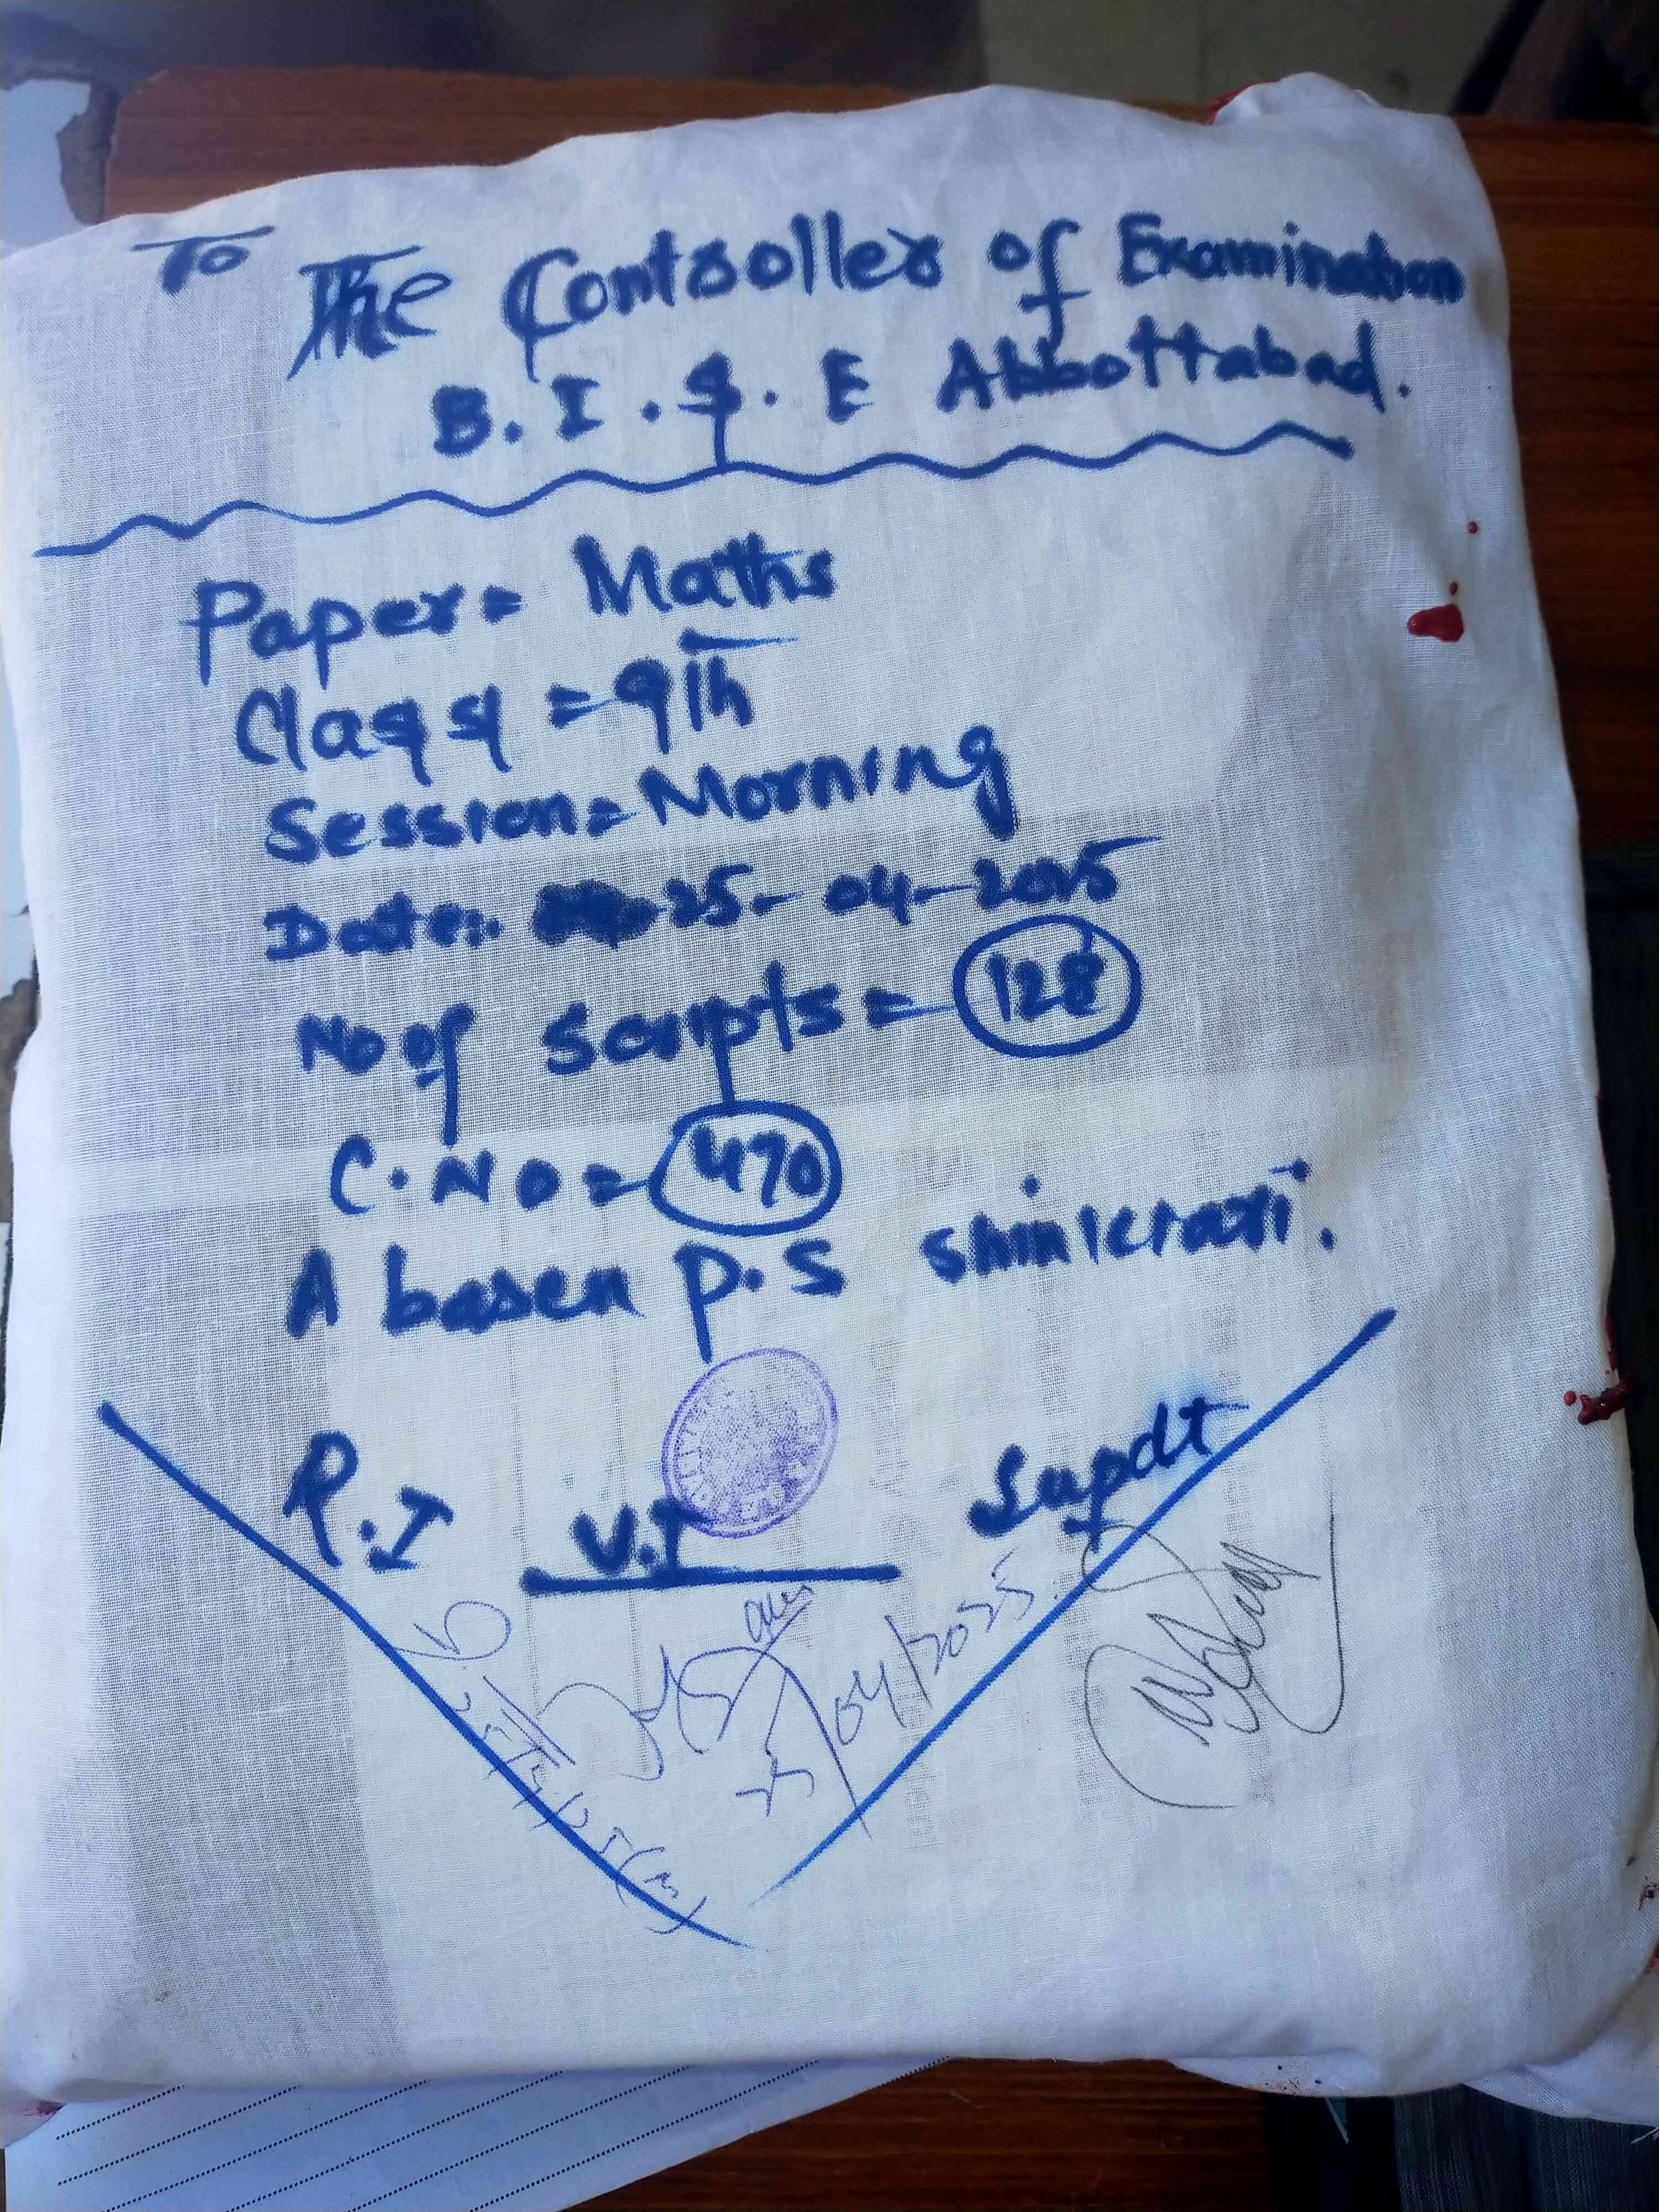 To
The Controller of Examination
B.I.S.E Abbottabad.
Paper = Maths
Class = 9th
Session = Morning
Date:- 25-04-2025
No of Scripts = 128
C.NO = 470
A basen P.S shinkiari.
R.I V.I Supdt
25/04/2025